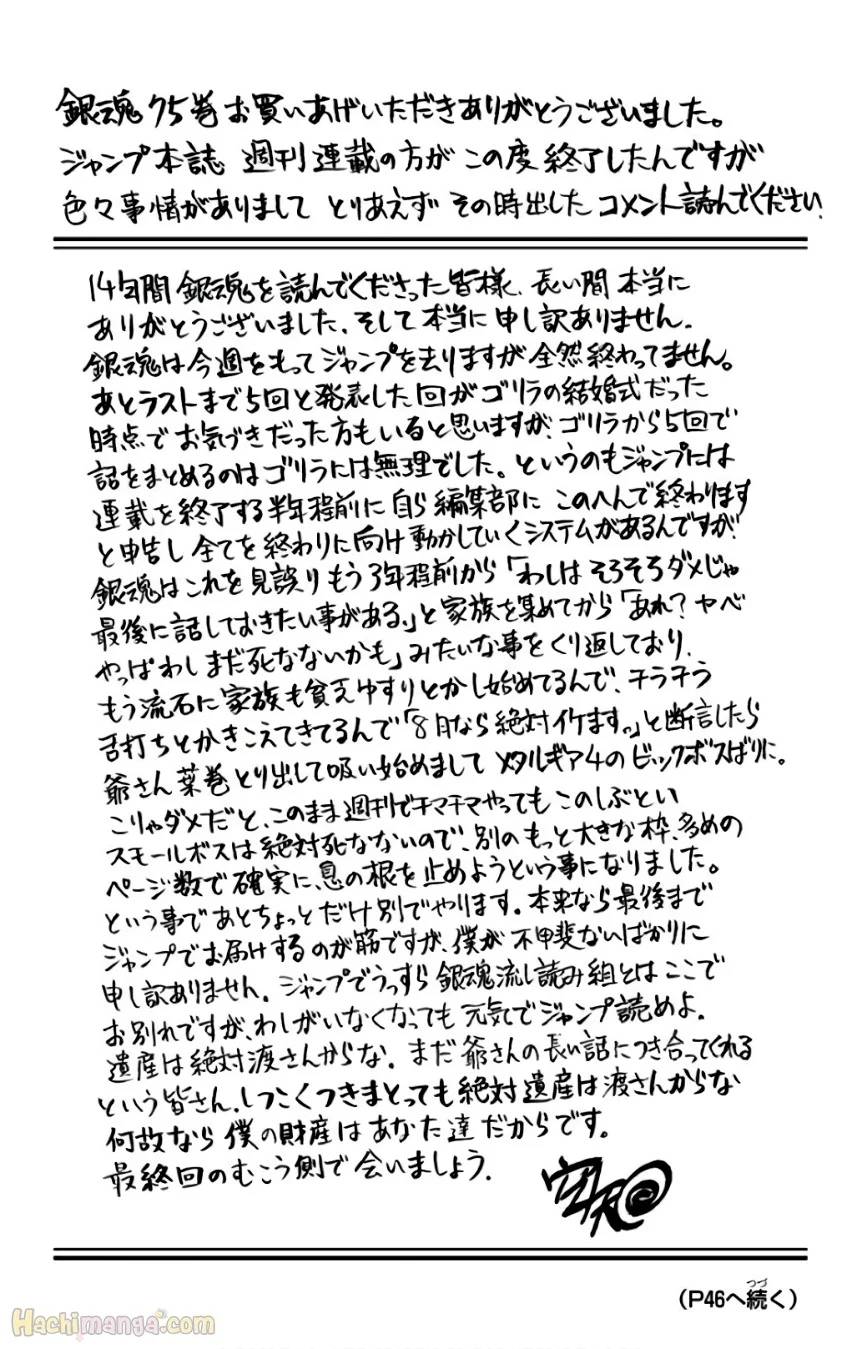 銀魂75巻お買いあげいただきありがとうございました。
ジャンプ本誌 週刊連載の方が この度終了したんですが
色々事情がありまして とりあえず その時出した コメント読んでください。
14年間銀魂を読んでくださった皆様、長い間 本当に
ありがとうございました、そして本当に申し訳ありません。
銀魂は今週をもってジャンプを去りますが全然終わってません。
あとラストまで5回と発表した回がゴリラの結婚式だった
時点でお気づきだった方もいると思いますが、ゴリラから5回で
話をまとめるのはゴリラには無理でした。というのもジャンプには
連載を終了する半年程前に自ら編集部に このへんで終わります
と申告し全てを終わりに向け動かしていくシステムがあるんですが
銀魂はこれを見誤りもう3年程前から「わしはそろそろダメじゃ
最後に話しておきたい事がある。」と家族を集めてから「あれ?ヤベ
やっぱわしまだ死なないかも」みたいな事をくり返しており、
もう流石に家族も貧乏ゆすりとかし始めてるんで、チラチラ
舌打ちとかきこえてきてるんで「8月なら絶対イケます。」と断言したら
爺さん葉巻とり出して吸い始めまして メタルギア4のビックボスばりに。
こりゃダメだと、このまま週刊でチマチマやってもこのしぶとい
スモールボスは絶対死なないので、別のもっと大きな枠、多めの
ページ数で確実に、息の根を止めようという事になりました。
という事であとちょっとだけ別でやります。本来なら最後まで
ジャンプでお届けするのが筋ですが、僕が不甲斐ないばかりに
申し訳ありません。ジャンプでうっすら銀魂流し読み組とはここで
お別れですが、わしがいなくなっても元気でジャンプ読めよ。
遺産は絶対渡さんからな。まだ爺さんの長い話につき合ってくれる
という皆さん、しつこくつきまとっても絶対遺産は渡さんからな
何故なら僕の財産はあなた達だからです。
最終回のむこう側で会いましょう。
(P46へ続く)
つづ
Hachimanga.com